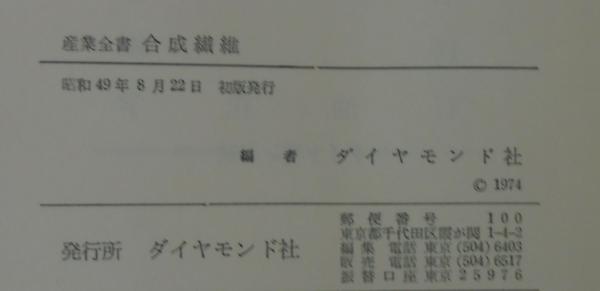 産業全書 合成繊維
昭和49年8月22日 初版発行
編者 ダイヤモンド社
© 1974
発行所 ダイヤモンド社
郵便番号 100
東京都千代田区霞が関 1-4-2
編集 電話 東京 (504) 6403
販売 電話 東京 (504) 6517
振替口座 東京 25976